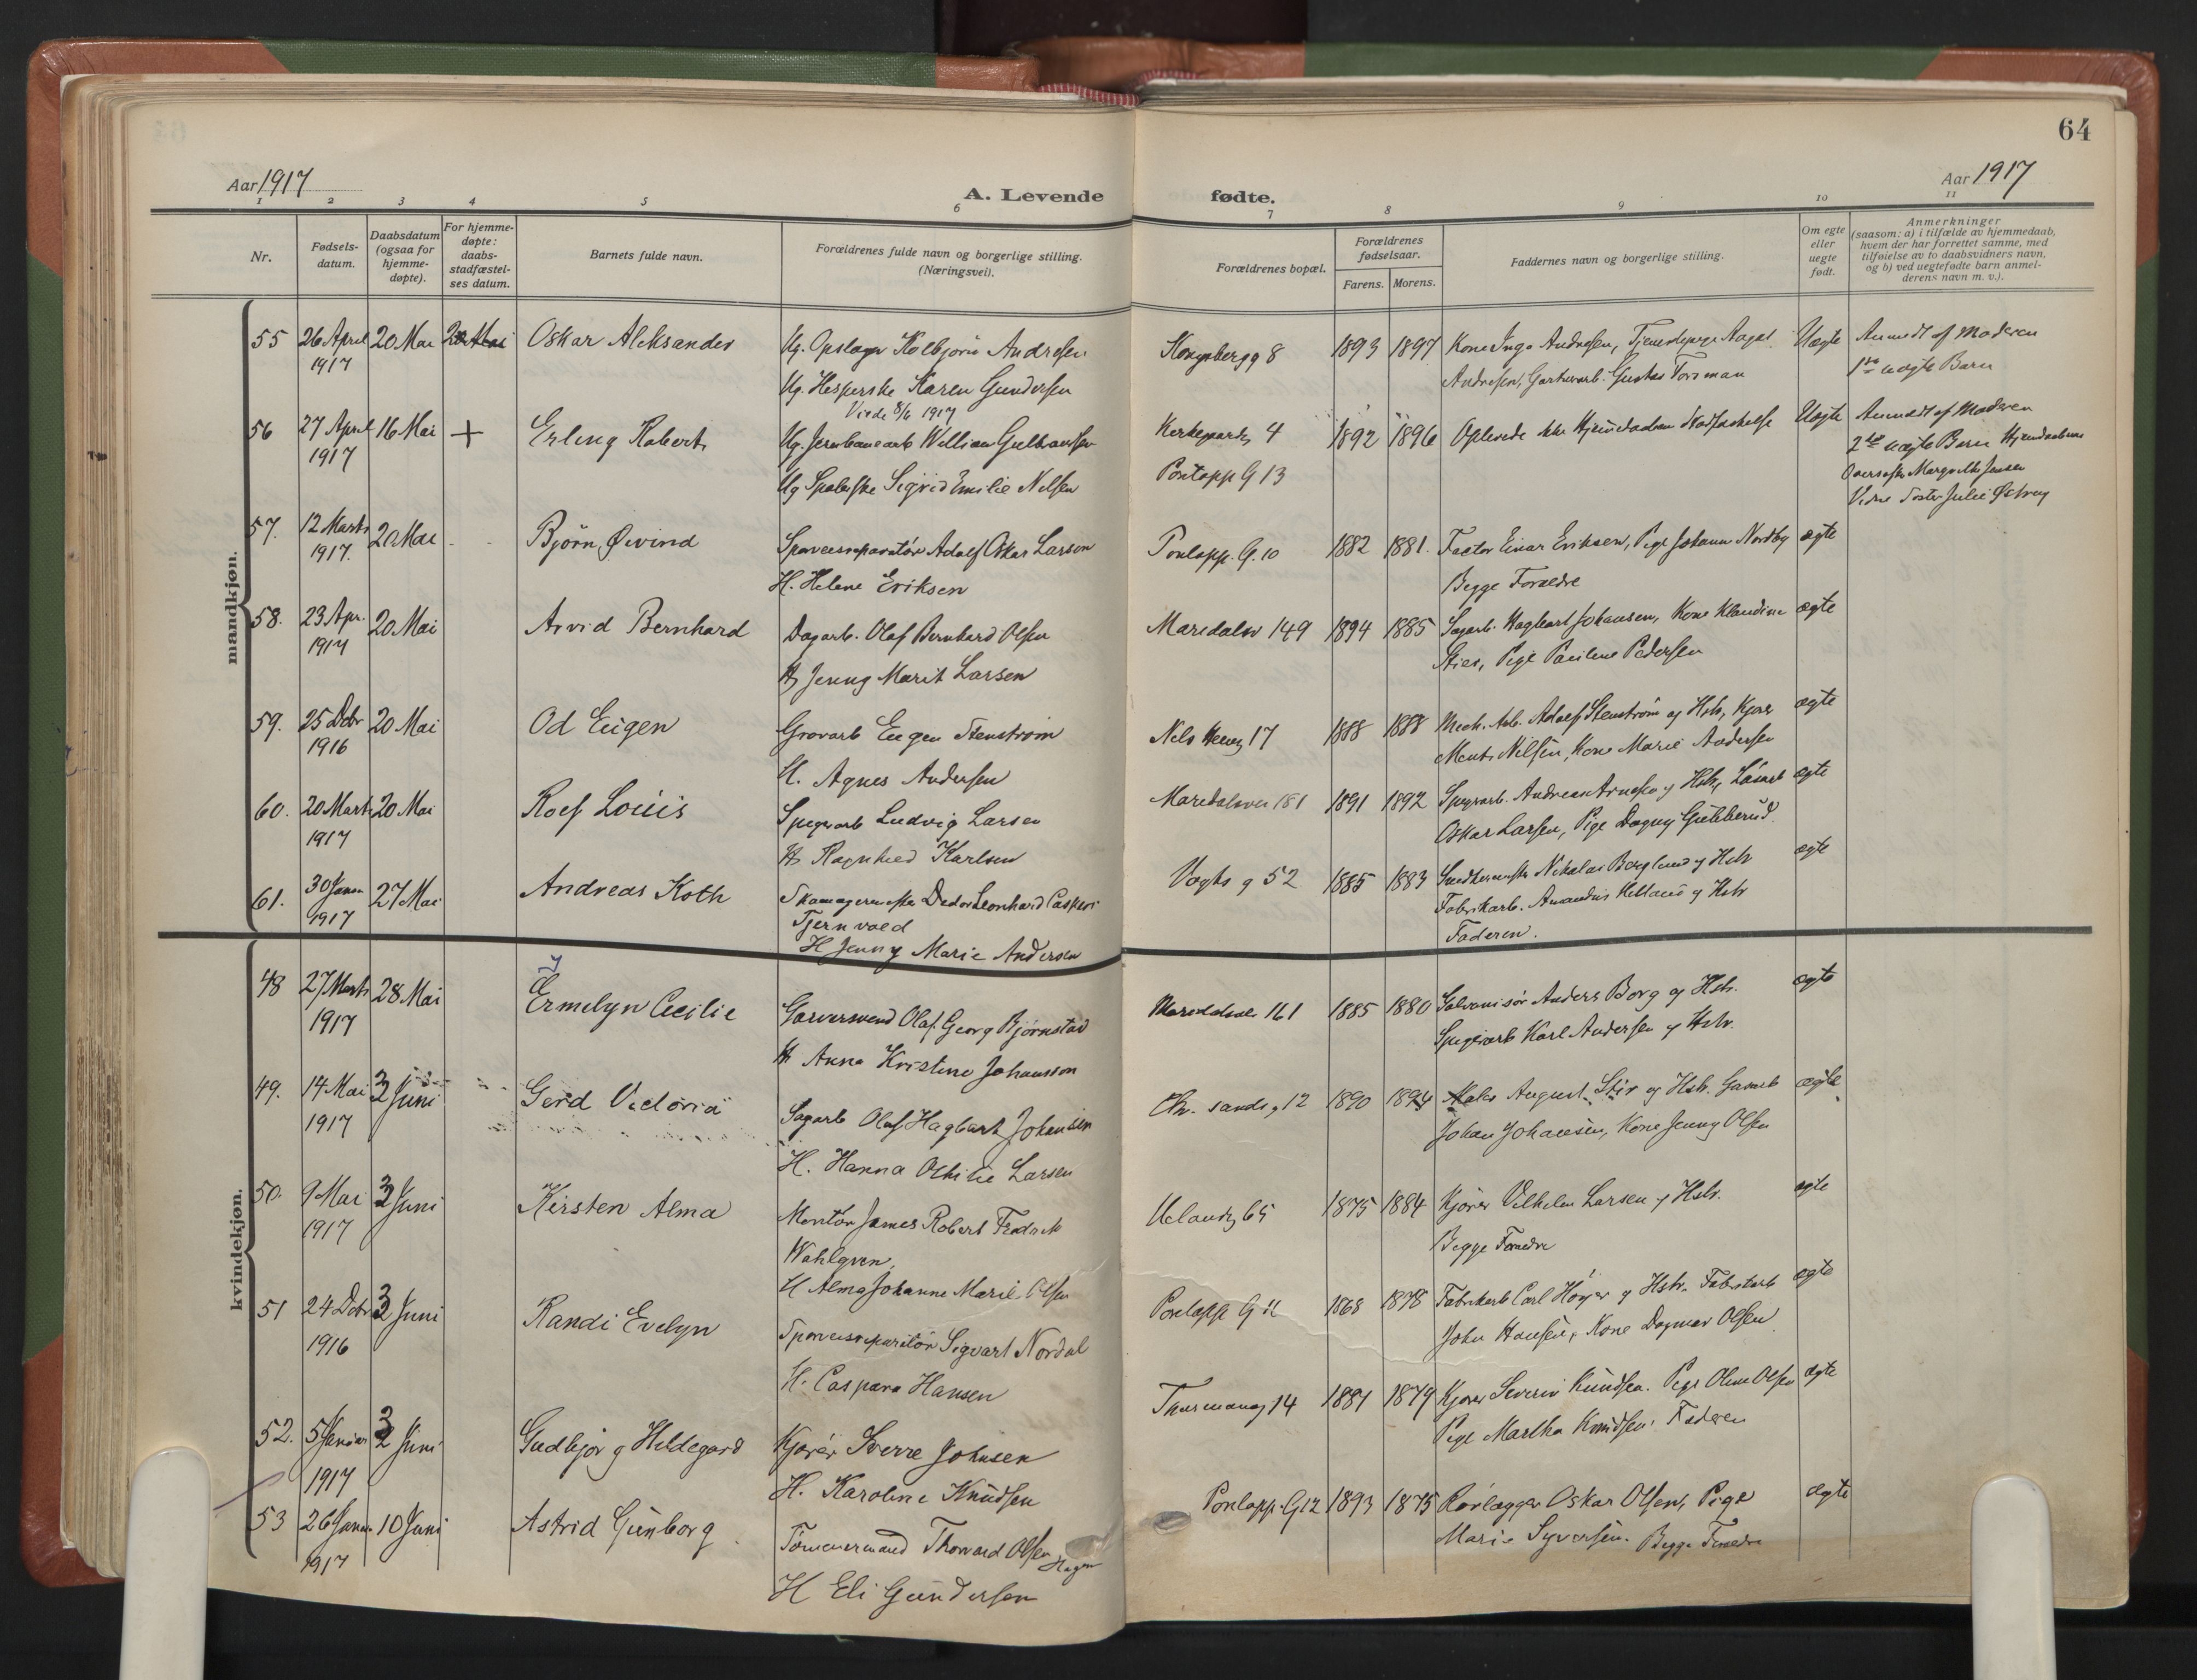 64
Aar 1917
A. Levende fødte.
Aar 1917
1 2 3 4 5 6 7 8 9 10 11
Nr.
Fødsels-
datum.
Daabsdatum
(ogsaa for
hjemme-
døpte).
For hjemme-
døpte:
daabs-
stadfæstel-
ses datum.
Barnets fulde navn.
Forældrenes fulde navn og borgerlige stilling.
(Næringsvei).
Forældrenes bopæl.
Forældrenes
fødselsaar.
Farens. Morens.
Faddernes navn og borgerlige stilling.
Om egte
eller
uegte
født.
Anmerkninger
(saasom: a) i tilfælde av hjemmedaab,
hvem der har forrettet samme, med
tilføielse av to daabsvidners navn,
og b) ved uegtefødte barn anmel-
derens navn m. v.).
mandkjøn.
55 26 April 20 Mai Oskar Aleksander Ug. Kolbjørn Andresen 8 1893 1897 Kone Inga Andresen, Uægte Anmeldt af Moderen
1917 Ug. Karen Gundersen Andresen, Gustav 1ste uægte Barn
Viede 8/6 1917
56 27 April 16 Mai + Erling Robert Ug. Jernbanearb William 4 1892 1896 Oplevede ikke Uægte Anmeldt af Moderen
1917 Ug Sigrid Emilie Nilsen Pontopp G 13 2det uægte Barn
Jensen
57. 12 Marts 20 Mai Bjørn Øivind Sporveisreparatør Adolf Oskar Larson Pontopp. G. 10 1882 1881. Factor Einar Eriksen, Pige Johanne Nordby ægte
1917. H. Helene Eriksen Begge Forældre
58. 23 Apr. 20 Mai Arvid Bernhard Dagarb. Olaf Bernhard Olsen Maridalsv 149 1894 1885 Sagarb. Hagbart Johansen, Kone Klaudine ægte
1917 H Jenny Marit Larsen Stier, Pige Pauline Pedersen
59. 25 Dcbr 20 Mai Od Eugen Gravarb Eugen Stenstrøm Nels 17 1888 1888 Mech. Arb. Adolf Stenstrøm og Hstr, Kjører ægte
1916 H. Agnes Andersen Nilsen, Kone Marie Andersen
60. 20 Marts 20 Mai Rolf Louis Spigerarb Ludvig Larsen Maridalsvei 181 1891 1892 Spigerarb. Andreas og Hstr, ægte
1917 H Ragnhild Karlsen Oskar Larsen, Pige Dagny
61. 30 Janu 27 Mai Andreas Koth Skomagermester Leonhard Vogts g 52 1885 1883 Nikolai Berglund og Hstr ægte
1917 Tjernvold Fabrikarb. og Hstr
H Jenny Marie Andersen Faderen.
kvindekjøn.
y
48 27 Marts 28 Mai Ermelyn Cecilie Garversvend Olaf Georg Bjørnstad Maridalsv. 161 1885 1880 Galvanisør Anders Borg og Hstr. ægte
1917 H Anna Kristine Johansson Spigerarb Karl Andersen og Hstr.
49. 14 Mai 3 Juni Gerd Victoria Sagarb Olaf Hagbart Johansen 12 1890 1894 August og Hstr. ægte
1917 H. Hanna Othilie Larsen Johan Johansen, Kone Jenny Olsen
50. 9 Mai 3 Juni Kirsten Alma Montør James Robert Fredrik Uelandsg 65 1875 1884 Kjører Vilhelm Larsen og Hstr. ægte
1917 Wahlgren Begge Forældre
H Alma Johanne Marie Olsen
51 24 Dcbr 3 Juni Randi Evelyn Sporveisreparatør Sigvart Nordal Pontopp G 11 1868 1878 Fabrikarb Carl Høyer og Hstr. Fabrikarb ægte
1916 H. Caspara Hansen John Hansen, Kone Dagmar Olsen
52. 5 Januar 3 Juni Gudbjørg Hildegard Kjører Sverre Johnsen Thurmannsg 14 1881 1879 Kjører Severin Knudsen. Pige Oline Olsen ægte
1917 H. Karoline Knudsen Pige Martha Knudsen. Faderen
53 26 Janu. 10 Juni Astrid Gunborg Tømmermand Thorvard Olsen Hagen Pontopp. G 12 1893 1875 Rørlægger Oskar Olsen, Pige ægte
1917 H Eli Gundersen Marie Syversen. Begge Forældre